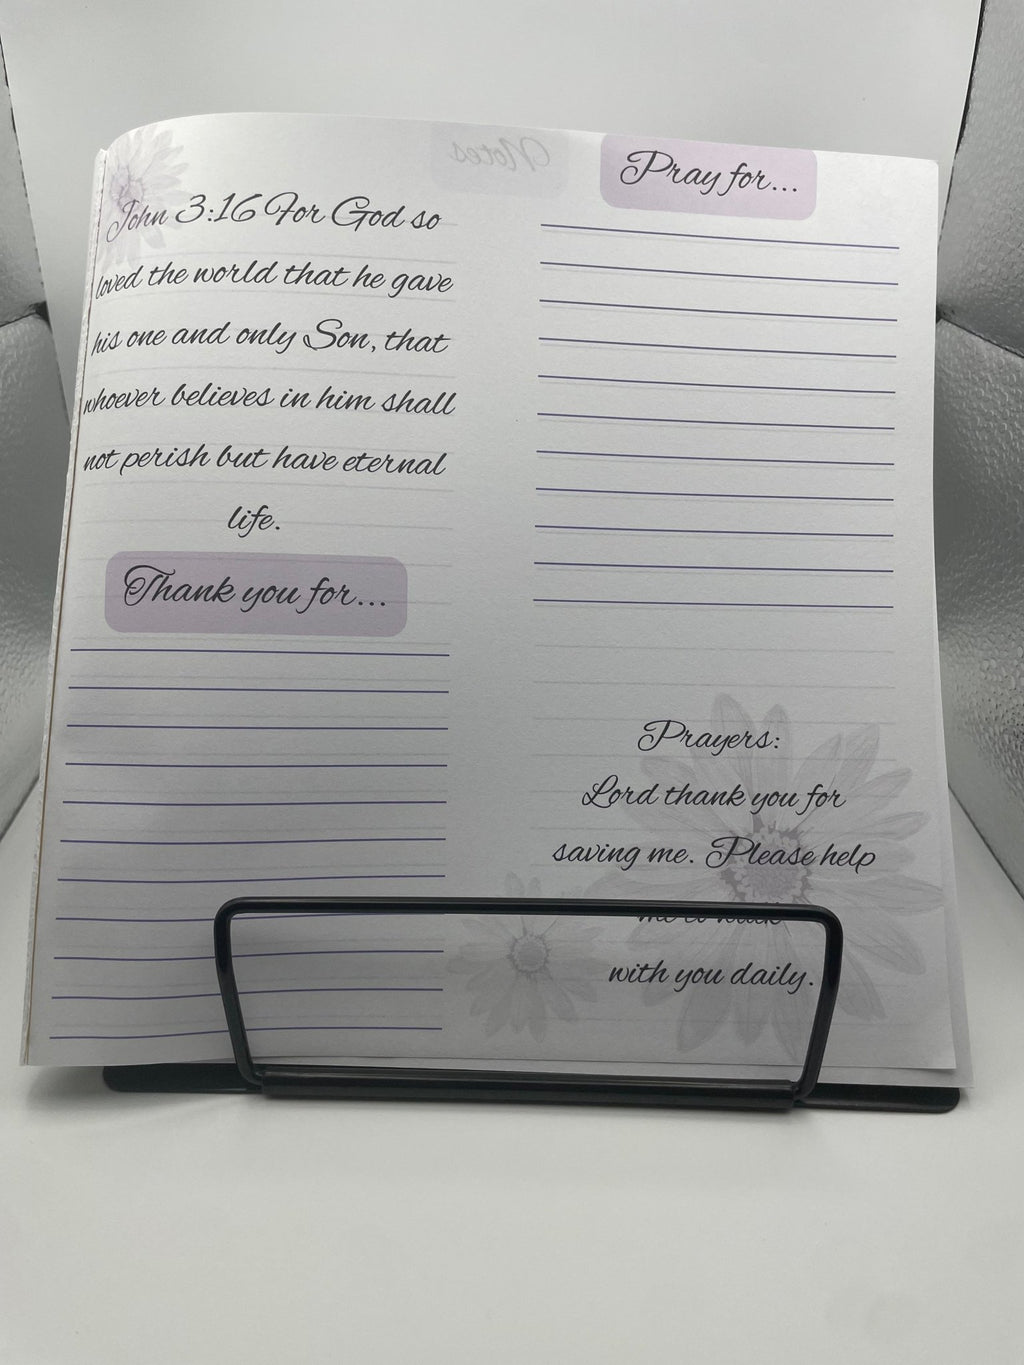 John 3:16 For God so
loved the world that he gave
his one and only Son, that
whoever believes in him shall
not perish but have eternal
life.
Thank you for...
Notes
Pray for...
Prayers:
Lord thank you for
saving me. Please help
me to walk
with you daily.